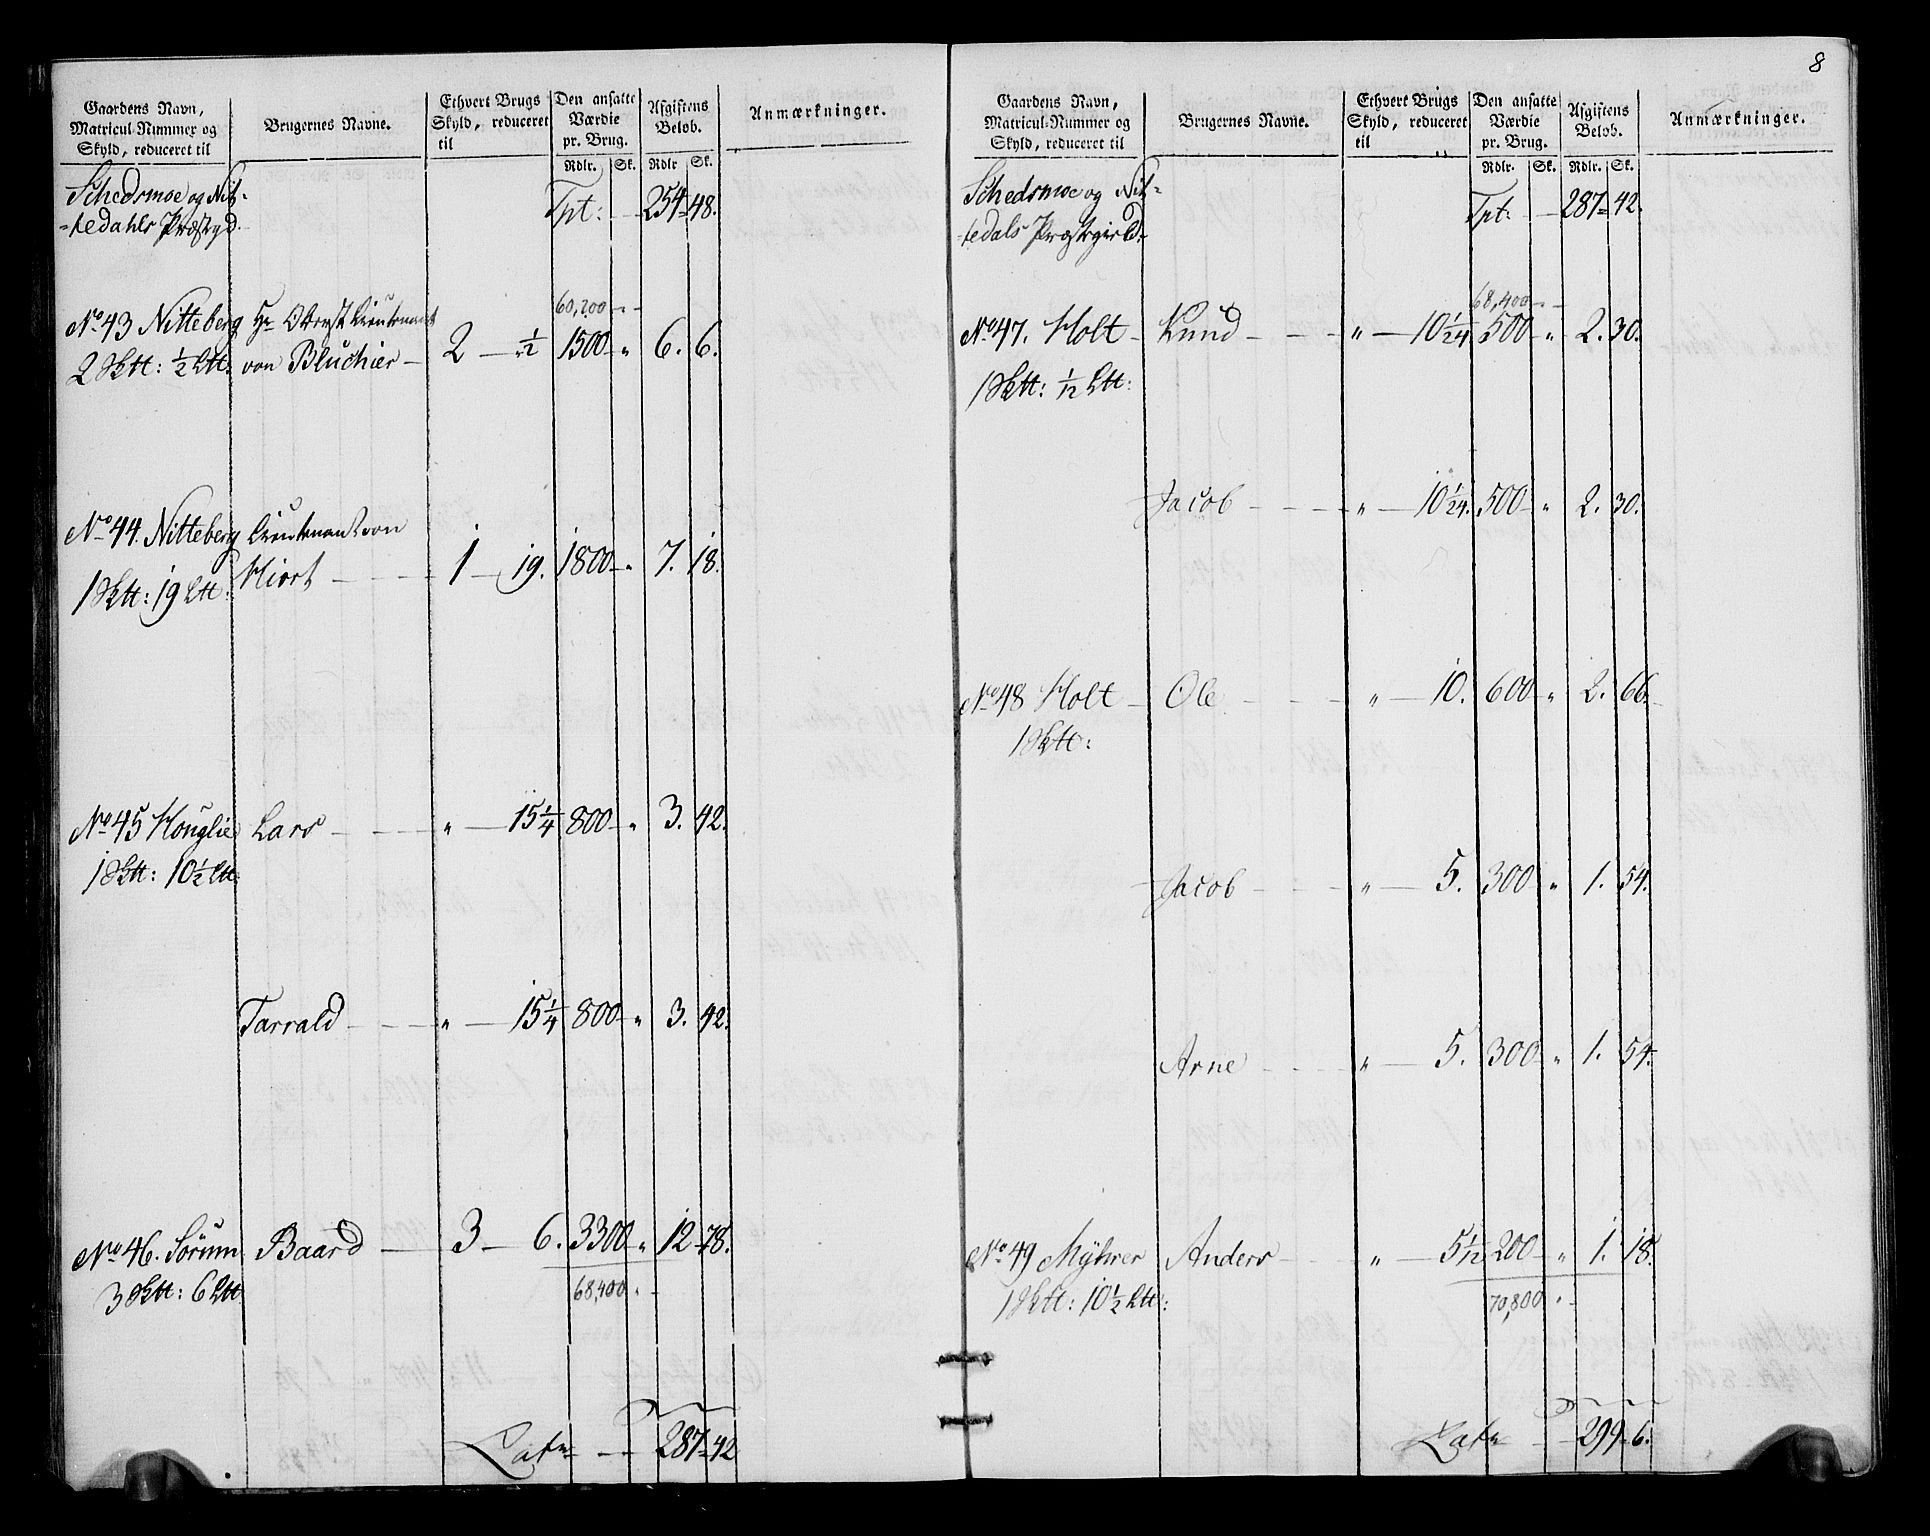 Gaardens Navn, Matricul-Nummer og Skyld, reduceret til | Brugernes Navne. | Ethvert Brugs Skyld, reduceret til | Den ansatte Værdie pr. Brug. Rdlr. Sk. | Afgiftens Beløb. Rdlr Sk. | Anmærkninger.
Schedsmoe og Nit-
-tedahls Præstgd. Tpt: — 254 - 48.
60,200 - -
No 43 Nitteberg Hr Oberst Lieutenant
2 Sktt: ½ Ltt: von Bluchier — 2 — " ½ 1500 - " 6. 6.
No 44. Nitteberg Lieutenant von
1 Sktt: 19 Ltt: Hiort — 1 — 19. 1800 - " 7. 18.
No 45 Houglie Lars — " — 15¼ 800 - " 3. 42.
1 Sktt: 10½ Ltt:
Tarrald — " — 15¼ 800 - " 3. 42.
No 46. Sørum Baard — 3 — 6. 3300 - " 12 - 78.
3 Sktt: 6 Ltt 68,400 " -
Latr — 287 - 42
8
Gaardens Navn, Matricul-Nummer og Skyld, reduceret til | Brugernes Navne. | Ethvert Brugs Skyld, reduceret til | Den ansatte Værdie pr. Brug. Rdlr. Sk. | Afgiftens Beløb. Rdlr. Sk. | Anmærkninger.
Schedsmoe og Nit-
-tedals Præstegield. Tpt: — 287 - 42.
68,400 - -
No 47. Holt — Knud — " — 10 1/24 500 " 2. 30.
1 Sktt: 1/12 Ltt:
Jacob — " — 10 1/24. 500 - " 2. 30.
No 48 Holt — Ole — " — 10. 600 - " 2. 66.
1 Sktt:
Jacob — " — 5. 300 " 1. 54.
Arne — " — 5. 300 - " 1. 54.
No 49 Myhrer Anders — " — 5 1/12 200 - " 1. 18.
1 Sktt: 10½ Ltt: 70,800 " -
Latr — 299 - 6.